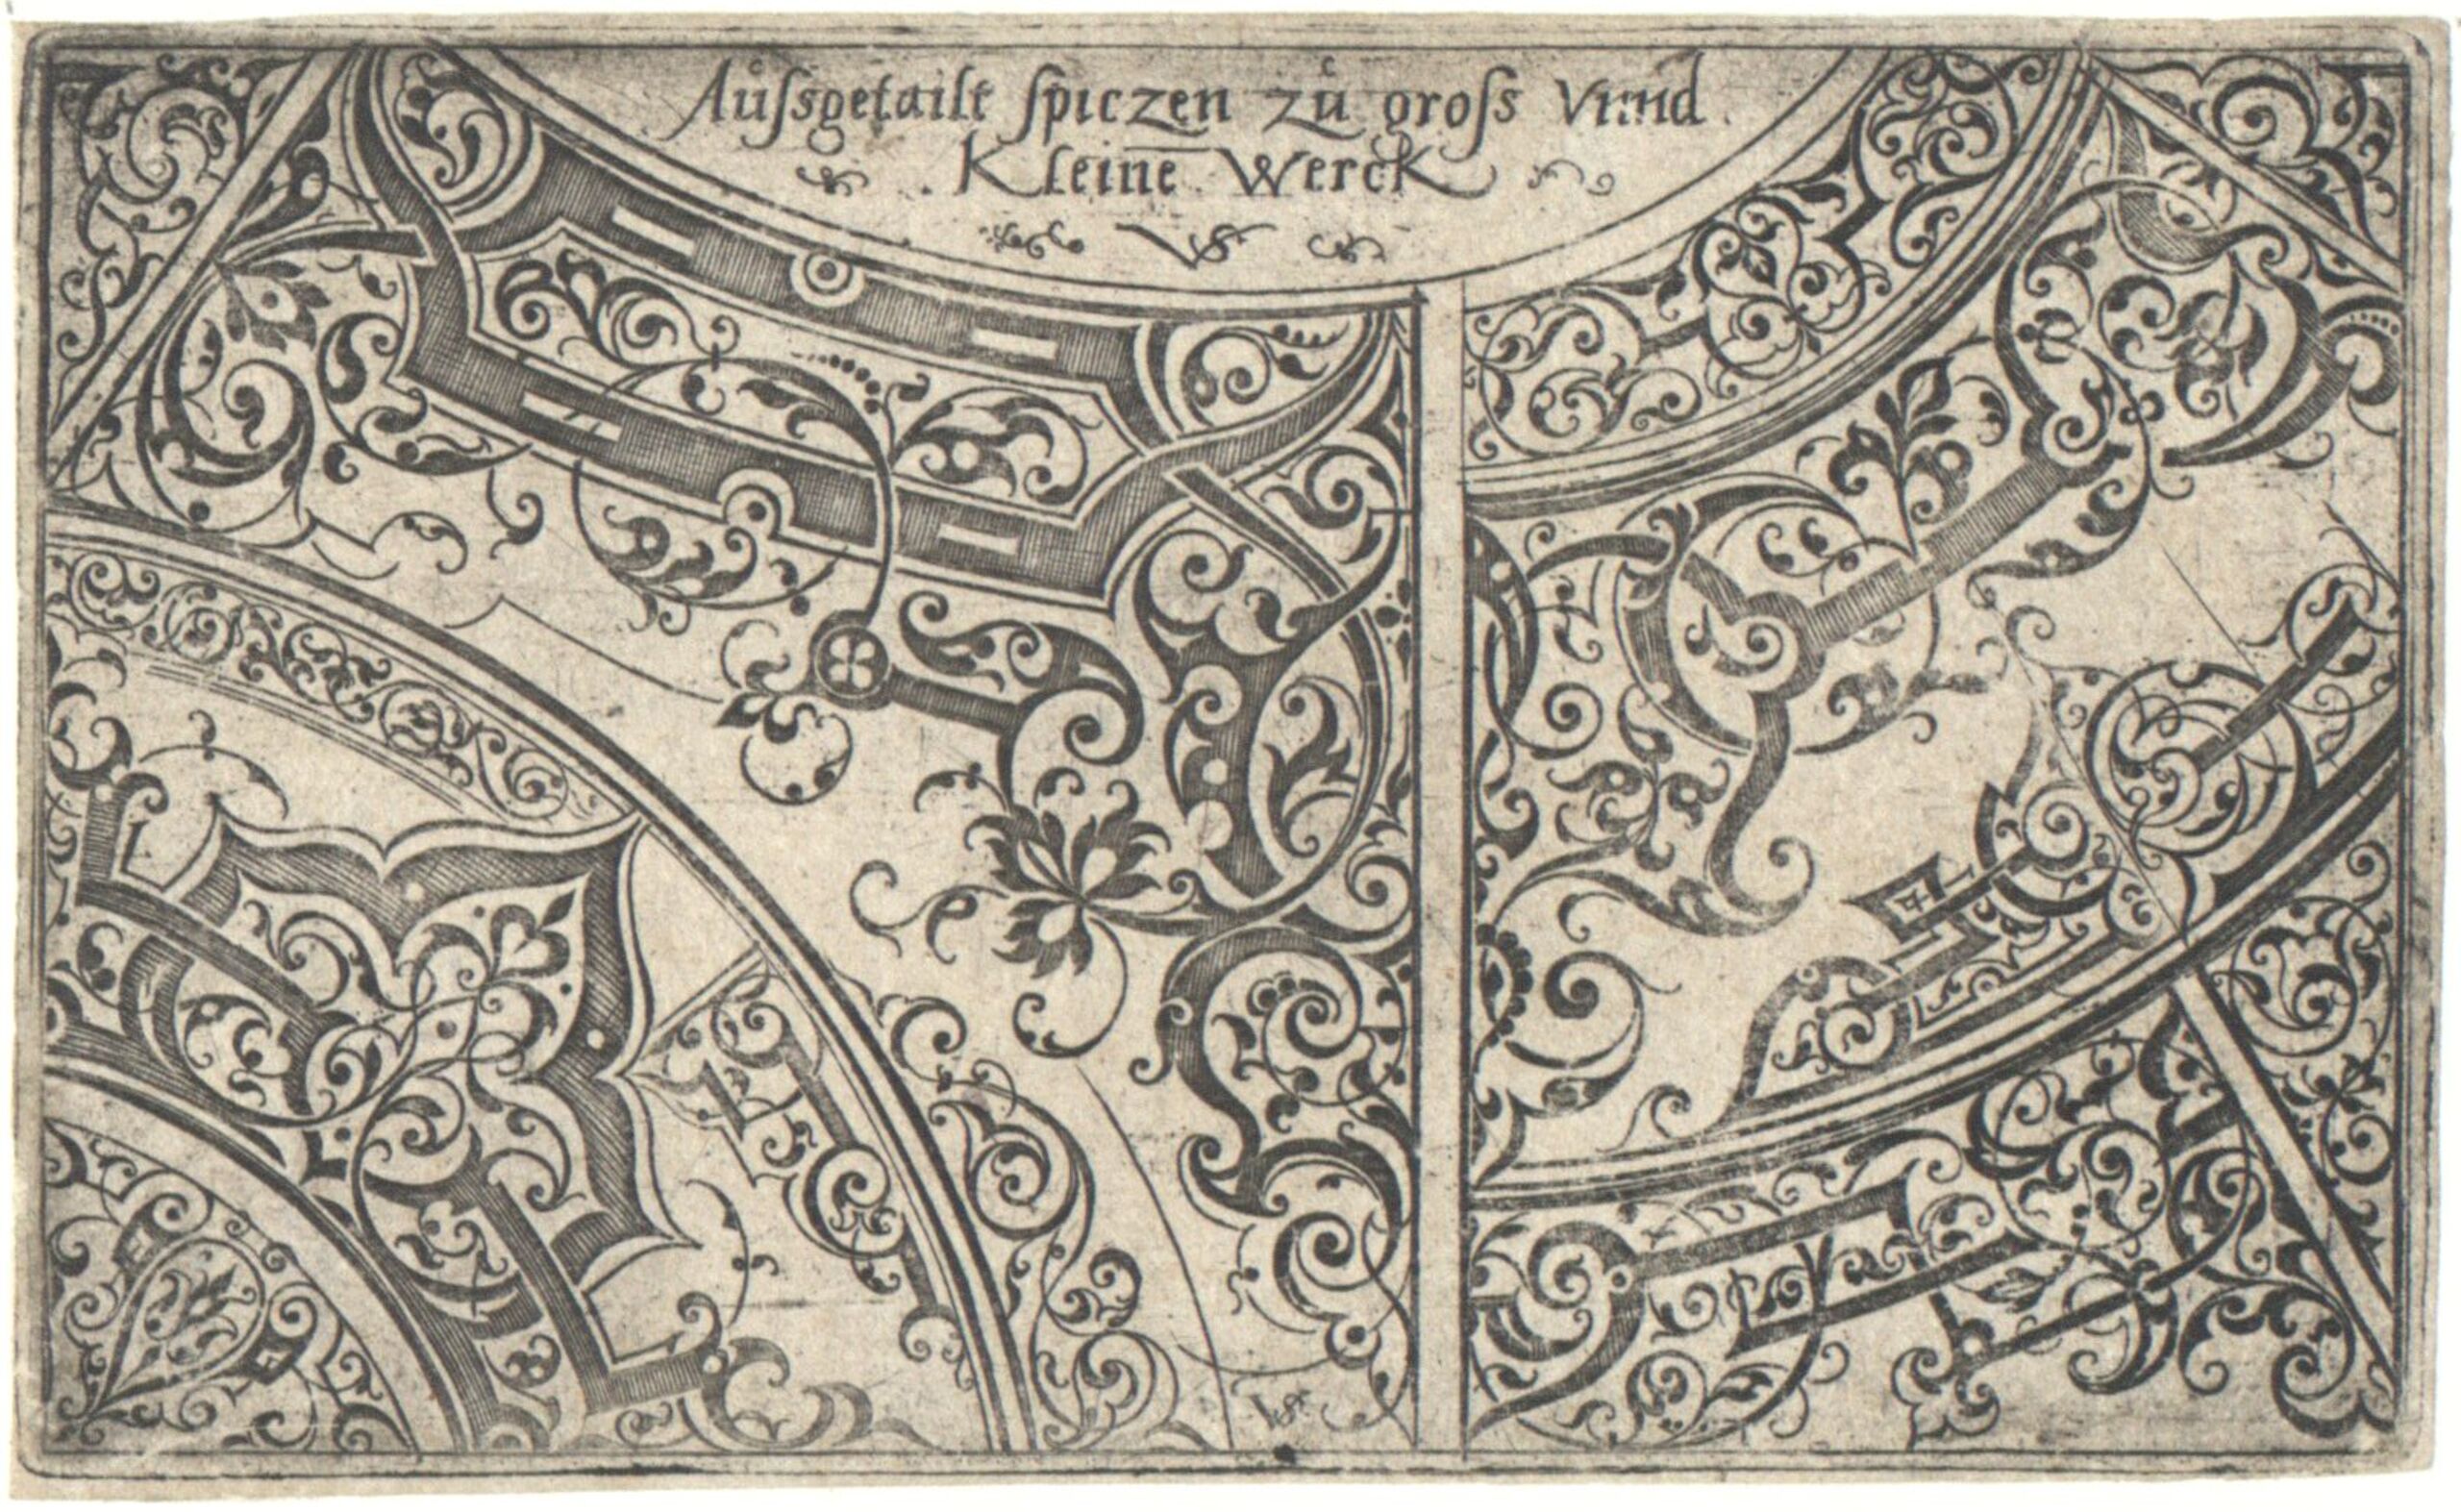 Aufsgetailt spiczen zu gross Vnnd.
Kleinē Werck
VS